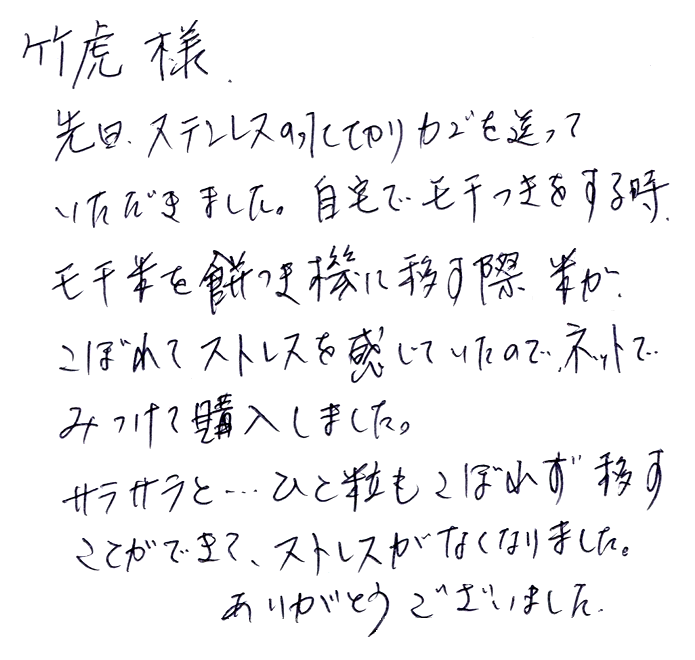 竹虎 様
先日、ステンレスの水切りカゴを送って
いただきました。自宅でモチつきをする時、
モチ米を餅つき機に移す際 米が、
こぼれてストレスを感じていたので、ネットで
みつけて購入しました。
サラサラと…ひと粒もこぼれず移す
ことができて、ストレスがなくなりました。
ありがとうございました。